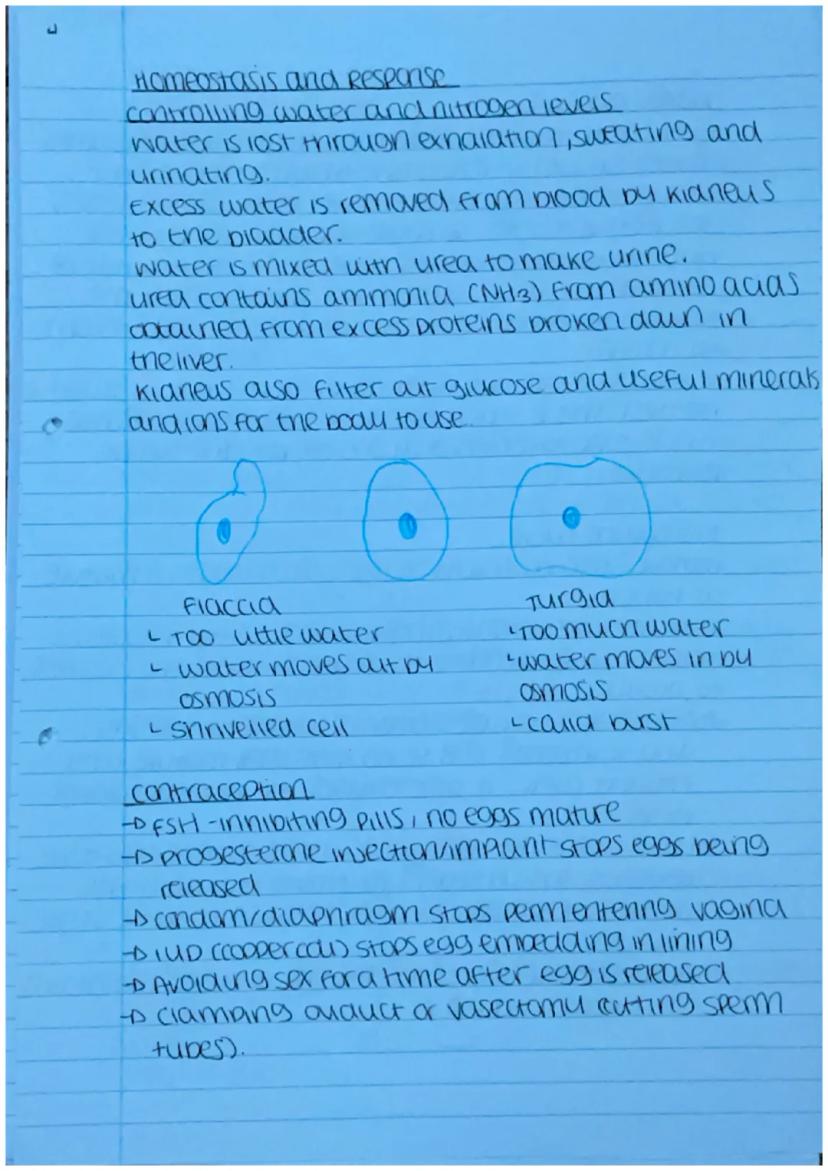 Homeostasis and Response
Controlling water and nitrogen levels
Water is lost through exhalation, sweating and
urinating.
Excess water is removed from blood by kidneys
to the bladder.
Water is mixed with urea to make urine.
Urea contains ammonia (NH3) from amino acids
obtained from excess proteins broken down in
the liver.
Kidneys also filter out glucose and useful minerals
and ions for the body to use.
Flaccid
Turgid
↳ Too little water
↳ Too much water
↳ water moves out by
↳ water moves in by
osmosis
osmosis
↳ shrivelled cell
↳ could burst
Contraception
→ FSH-inhibiting pills, no eggs mature
→ progesterone injection/implant stops eggs being
released
→ condom/diaphragm stops perm entering vagina
→ IUD (copper coil) stops egg embedding in lining
→ Avoiding sex for a time after egg is released
→ clamping oviduct or vasectomy (cutting sperm
tubes).